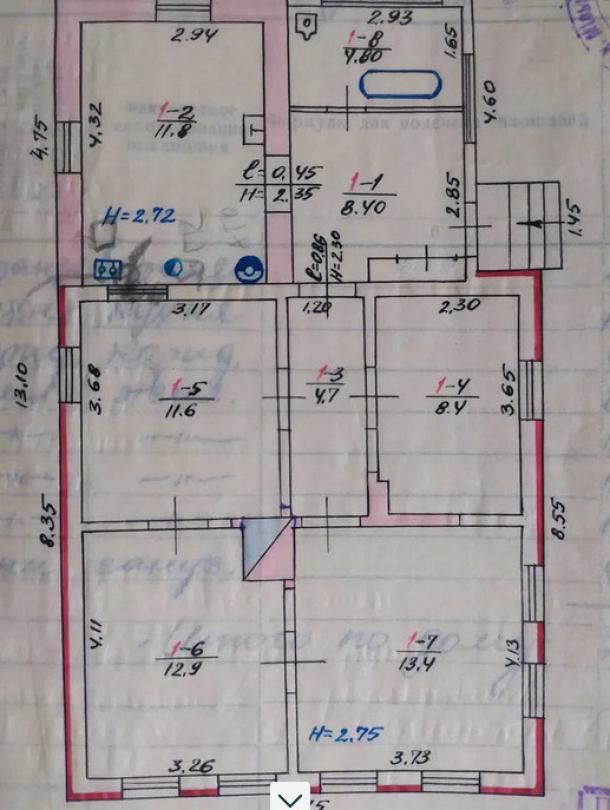 2.94
2.93
1-8
4.80
1.65
4.60
4.75
4.32
1-2
11.8
T
l=0.45
H=2.35
1-1
8.40
2.85
1.45
H=2.72
l=0.86
H=2.30
3.17
1.20
2.30
13.10
3.68
1-5
11.6
1-3
4.7
1-4
8.4
3.65
8.35
8.55
4.11
1-6
12.9
1-7
13.4
4.13
H=2.75
3.26
3.73